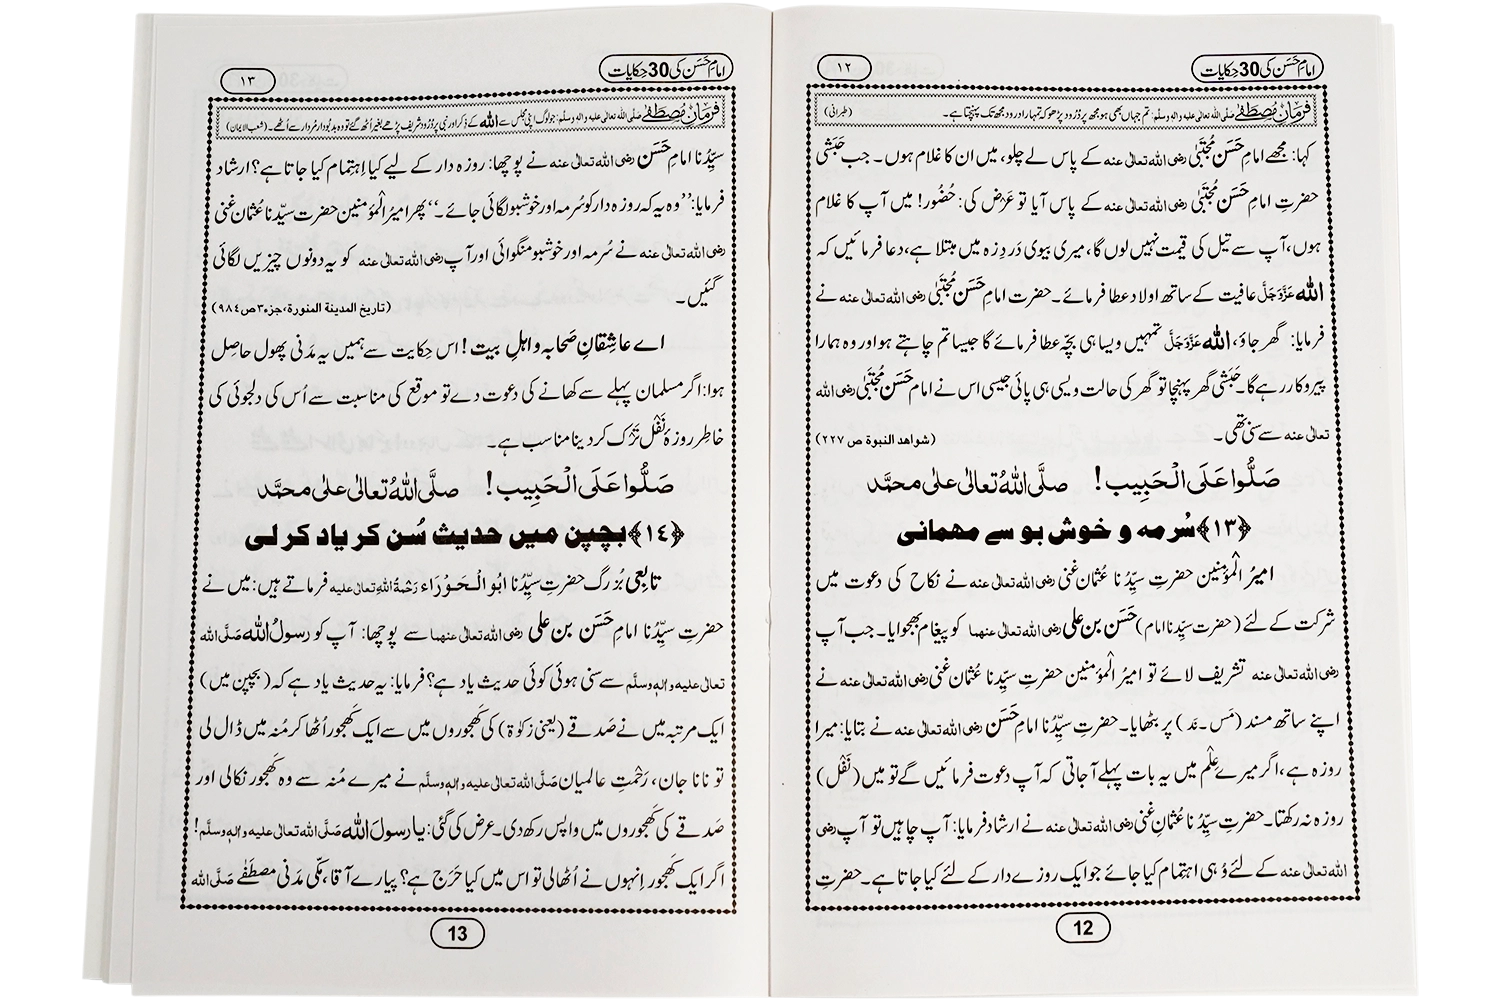 امامِ حَسَن کی 30 حِکایات
۱۲
فرمانِ مُصطَفٰے صلَّی اللہ تعالٰی علیہ واٰلہٖ وسلَّم: تم جہاں بھی ہو مجھ پر دُرُود پڑھو کہ تمہارا درود مجھ تک پہنچتا ہے۔ (طبرانی)
کہا: مجھے امامِ حَسَن مُجتَبیٰ رضی اللہ تعالٰی عنہ کے پاس لے چلو، میں ان کا غلام ہوں۔ جب حَبَشی
حضرتِ امامِ حَسَن مُجتَبیٰ رضی اللہ تعالٰی عنہ کے پاس آیا تو عَرْض کی: حُضُور! میں آپ کا غلام
ہوں، آپ سے تیل کی قیمت نہیں لوں گا، میری بیوی دَردِ زہ میں مبتلا ہے، دعا فرمائیں کہ
اللہ عَزَّوَجَلَّ عافیت کے ساتھ اولاد عطا فرمائے۔ حضرت امامِ حَسَن مُجتَبیٰ رضی اللہ تعالٰی عنہ نے
فرمایا: گھر جاؤ، اللہ عَزَّوَجَلَّ تمہیں ویسا ہی بچّہ عطا فرمائے گا جیسا تم چاہتے ہو اور وہ ہمارا
پیروکار رہے گا۔ حَبَشی گھر پہنچا تو گھر کی حالت ویسی ہی پائی جیسی اس نے امام حَسَن مُجتَبیٰ رضی اللہ
تعالٰی عنہ سے سنی تھی۔ (شواهد النبوة ص ۲۲۷)
صَلُّوا عَلَى الْحَبِيب! صلَّى اللهُ تعالٰى علٰى محمَّد
﴿۱۳﴾ سُرمہ و خوش بو سے مہمانی
امیرُ الْمُؤمنین حضرتِ سیِّدُنا عُثمانِ غنی رضی اللہ تعالٰی عنہ نے نکاح کی دعوت میں
شرکت کے لئے (حضرت سیِّدنا امام) حَسَن بن علی رضی اللہ تعالٰی عنہما کو پیغام بھجوایا۔ جب آپ
رضی اللہ تعالٰی عنہ تشریف لائے تو امیرُ الْمُؤمنین حضرت سیِّدنا عثمانِ غنی رضی اللہ تعالٰی عنہ نے
اپنے ساتھ مسند (مَس۔نَد) پر بٹھایا۔ حضرتِ سیِّدُنا امامِ حَسَن رضی اللہ تعالٰی عنہ نے بتایا: میرا
روزہ ہے، اگر میرے عِلْم میں یہ بات پہلے آ جاتی کہ آپ دعوت فرمائیں گے تو میں (نَفْل)
روزہ نہ رکھتا۔ حضرتِ سیِّدُنا عُثمانِ غنی رضی اللہ تعالٰی عنہ نے ارشاد فرمایا: آپ چاہیں تو آپ رضی
اللہ تعالٰی عنہ کے لئے وُہی اہتمام کیا جائے جو ایک روزے دار کے لئے کیا جاتا ہے۔ حضرتِ
12
امامِ حَسَن کی 30 حِکایات
۱۳
فرمانِ مُصطَفٰے صلَّی اللہ تعالٰی علیہ واٰلہٖ وسلَّم: جو لوگ اپنی مجلس سے اللہ کے ذکر اور نبی پر دُرُود شریف پڑھے بغیر اُٹھ گئے تو وہ بدبُودار مُردار سے اُٹھے۔ (شعب الایمان)
سیِّدُنا امامِ حَسَن رضی اللہ تعالٰی عنہ نے پوچھا: روزہ دار کے لیے کیا اِہتِمام کیا جاتا ہے؟ ارشاد
فرمایا: ”وہ یہ کہ روزہ دار کو سُرمہ اور خوشبو لگائی جائے۔“ پھر امیرُ الْمُؤمنین حضرت سیِّدنا عُثمانِ غنی
رضی اللہ تعالٰی عنہ نے سُرمہ اور خوشبو منگوائی اور آپ رضی اللہ تعالٰی عنہ کو یہ دونوں چیزیں لگائی
گئیں۔ (تاریخ المدینة المنورة، جزء۳ ص۹۸٤)
اے عاشِقانِ صَحابہ و اہلِ بیت! اس حِکایت سے ہمیں یہ مَدَنی پھول حاصِل
ہوا: اگر مسلمان پہلے سے کھانے کی دعوت دے تو موقع کی مناسبت سے اُس کی دلجوئی کی
خاطِر روزۂ نَفْل تَرْک کر دینا مناسب ہے۔
صَلُّوا عَلَى الْحَبِيب! صلَّى اللهُ تعالٰى علٰى محمَّد
﴿۱٤﴾ بچپن میں حدیث سُن کر یاد کر لی
تابِعی بُزُرگ حضرتِ سیِّدُنا ابُو الْحَوْرَاء رَحْمَةُ اللهِ تعالٰى عليه فرماتے ہیں: میں نے
حضرتِ سیِّدُنا امامِ حَسَن بن علی رضی اللہ تعالٰی عنہما سے پوچھا: آپ کو رسولُ اللہ صَلَّى الله
تعالٰى عليه و اٰلهٖ وسلَّم سے سنی ہوئی کوئی حدیث یاد ہے؟ فرمایا: یہ حدیث یاد ہے کہ (بچپن میں)
ایک مرتبہ میں نے صَدَقے (یعنی زکوٰۃ) کی کَھجوروں میں سے ایک کَھجور اُٹھا کر مُنہ میں ڈال لی
تو نانا جان، رَحْمتِ عالمیان صَلَّى الله تعالٰى عليه و اٰلهٖ وسلَّم نے میرے مُنہ سے وہ کَھجور نکالی اور
صَدَقے کی کَھجوروں میں واپس رکھ دی۔ عرض کی گئی: یا رسولَ اللہ صَلَّى الله تعالٰى عليه و اٰلهٖ وسلَّم!
اگر ایک کَھجور اِنہوں نے اُٹھا لی تو اس میں کیا حَرَج ہے؟ پیارے آقا، مکّی مَدَنی مصطَفٰے صَلَّى الله
13